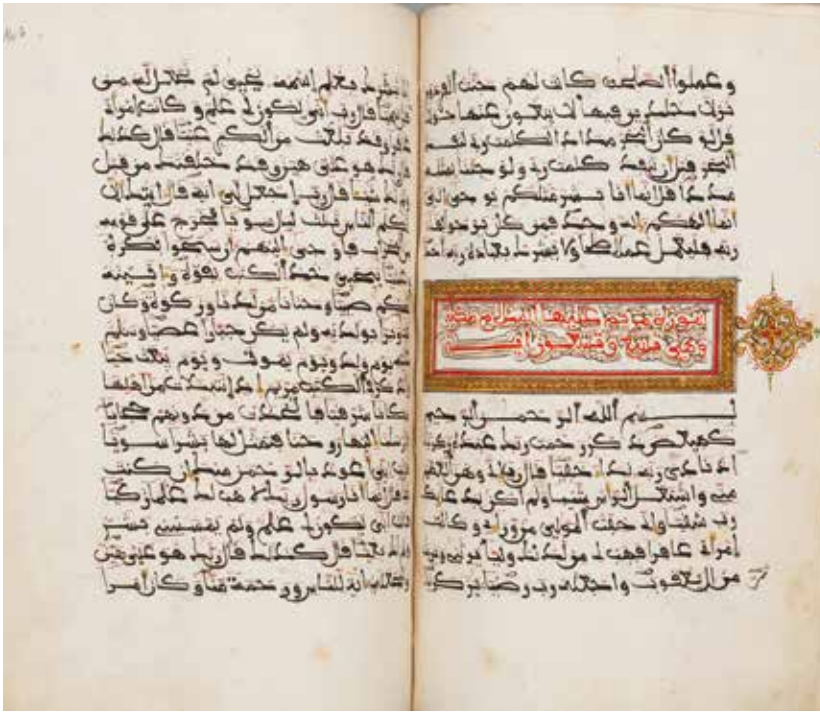 و عملوا الصلحت كانت لهم جنت الفردوس
نزلا خلدين فيها لا يبغون عنها حولا
قل لو كان البحر مدادا لكلمت ربي لنفد
البحر قبل ان تنفد كلمت ربي و لو جئنا بمثله
مددا قل انما انا بشر مثلكم يوحى الي
انما الهكم اله وحد فمن كان يرجوا لقاء
ربه فليعمل عملا صلحا ولا يشرك بعبادة ربه احدا
سورة مريم عليها السلام مكية
وهي وتسعون اية
بسم الله الرحمن الرحيم
كهيعص ذكر رحمت ربك عبده زكريا
اذ نادى ربه نداء خفيا قال رب اني وهن العظم
مني واشتعل الراس شيبا ولم اكن بدعائك
رب شقيا واني خفت الموالي من وراءي و كانت
امراتي عاقرا فهب لي من لدنك وليا يرثني ويرث
من ال يعقوب واجعله رب رضيا يزكريا
انا نبشرك بغلم اسمه يحيى لم نجعل له من
قبل سميا قال رب انى يكون لي غلم و كانت امراتي
عاقرا وقد بلغت من الكبر عتيا قال كذلك
قال ربك هو علي هين وقد خلقتك من قبل
ولم تك شيئا قال رب اجعل لي اية قال ايتك ان لا
تكلم الناس ثلث ليال سويا فخرج على قومه
من المحراب فاوحى اليهم ان سبحوا بكرة
وعشيا ييحيى خذ الكتب بقوة و اتينه
الحكم صبيا وحنانا من لدنا وزكوة وكان
تقيا وبرا بولديه ولم يكن جبارا عصيا وسلم
عليه يوم ولد ويوم يموت ويوم يبعث حيا
واذكر في الكتب مريم اذ انتبذت من اهلها
مكانا شرقيا فاتخذت من دونهم حجابا
فارسلنا اليها روحنا فتمثل لها بشرا سويا
قالت اني اعوذ بالرحمن منك ان كنت
تقيا قال انما انا رسول ربك لاهب لك غلما زكيا
قالت انى يكون لي غلم ولم يمسسني بشر
ولم اك بغيا قال كذلك قال ربك هو علي هين
ولنجعله اية للناس ورحمة منا و كان امرا